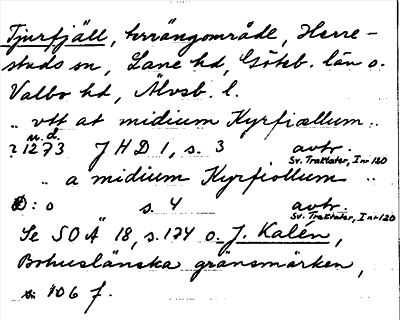 Tjurfjäll, terrängområde, Herre-
stads sn, Lane hd, Göteb. län o.
Valbo hd, Älvsb. l.
" vtt at midium Kyrfiællum "
u.d.
? 1273 JHD 1, s. 3 avtr.
Sv. Traktater, I nr 120
" a midium Kyrfiollum "
D:o s. 4 avtr.
Sv. Traktater, I nr 120
Se SOÄ 18, s. 174 o. J. Kalén,
Bohuslänska gränsmärken,
s. 106 f.